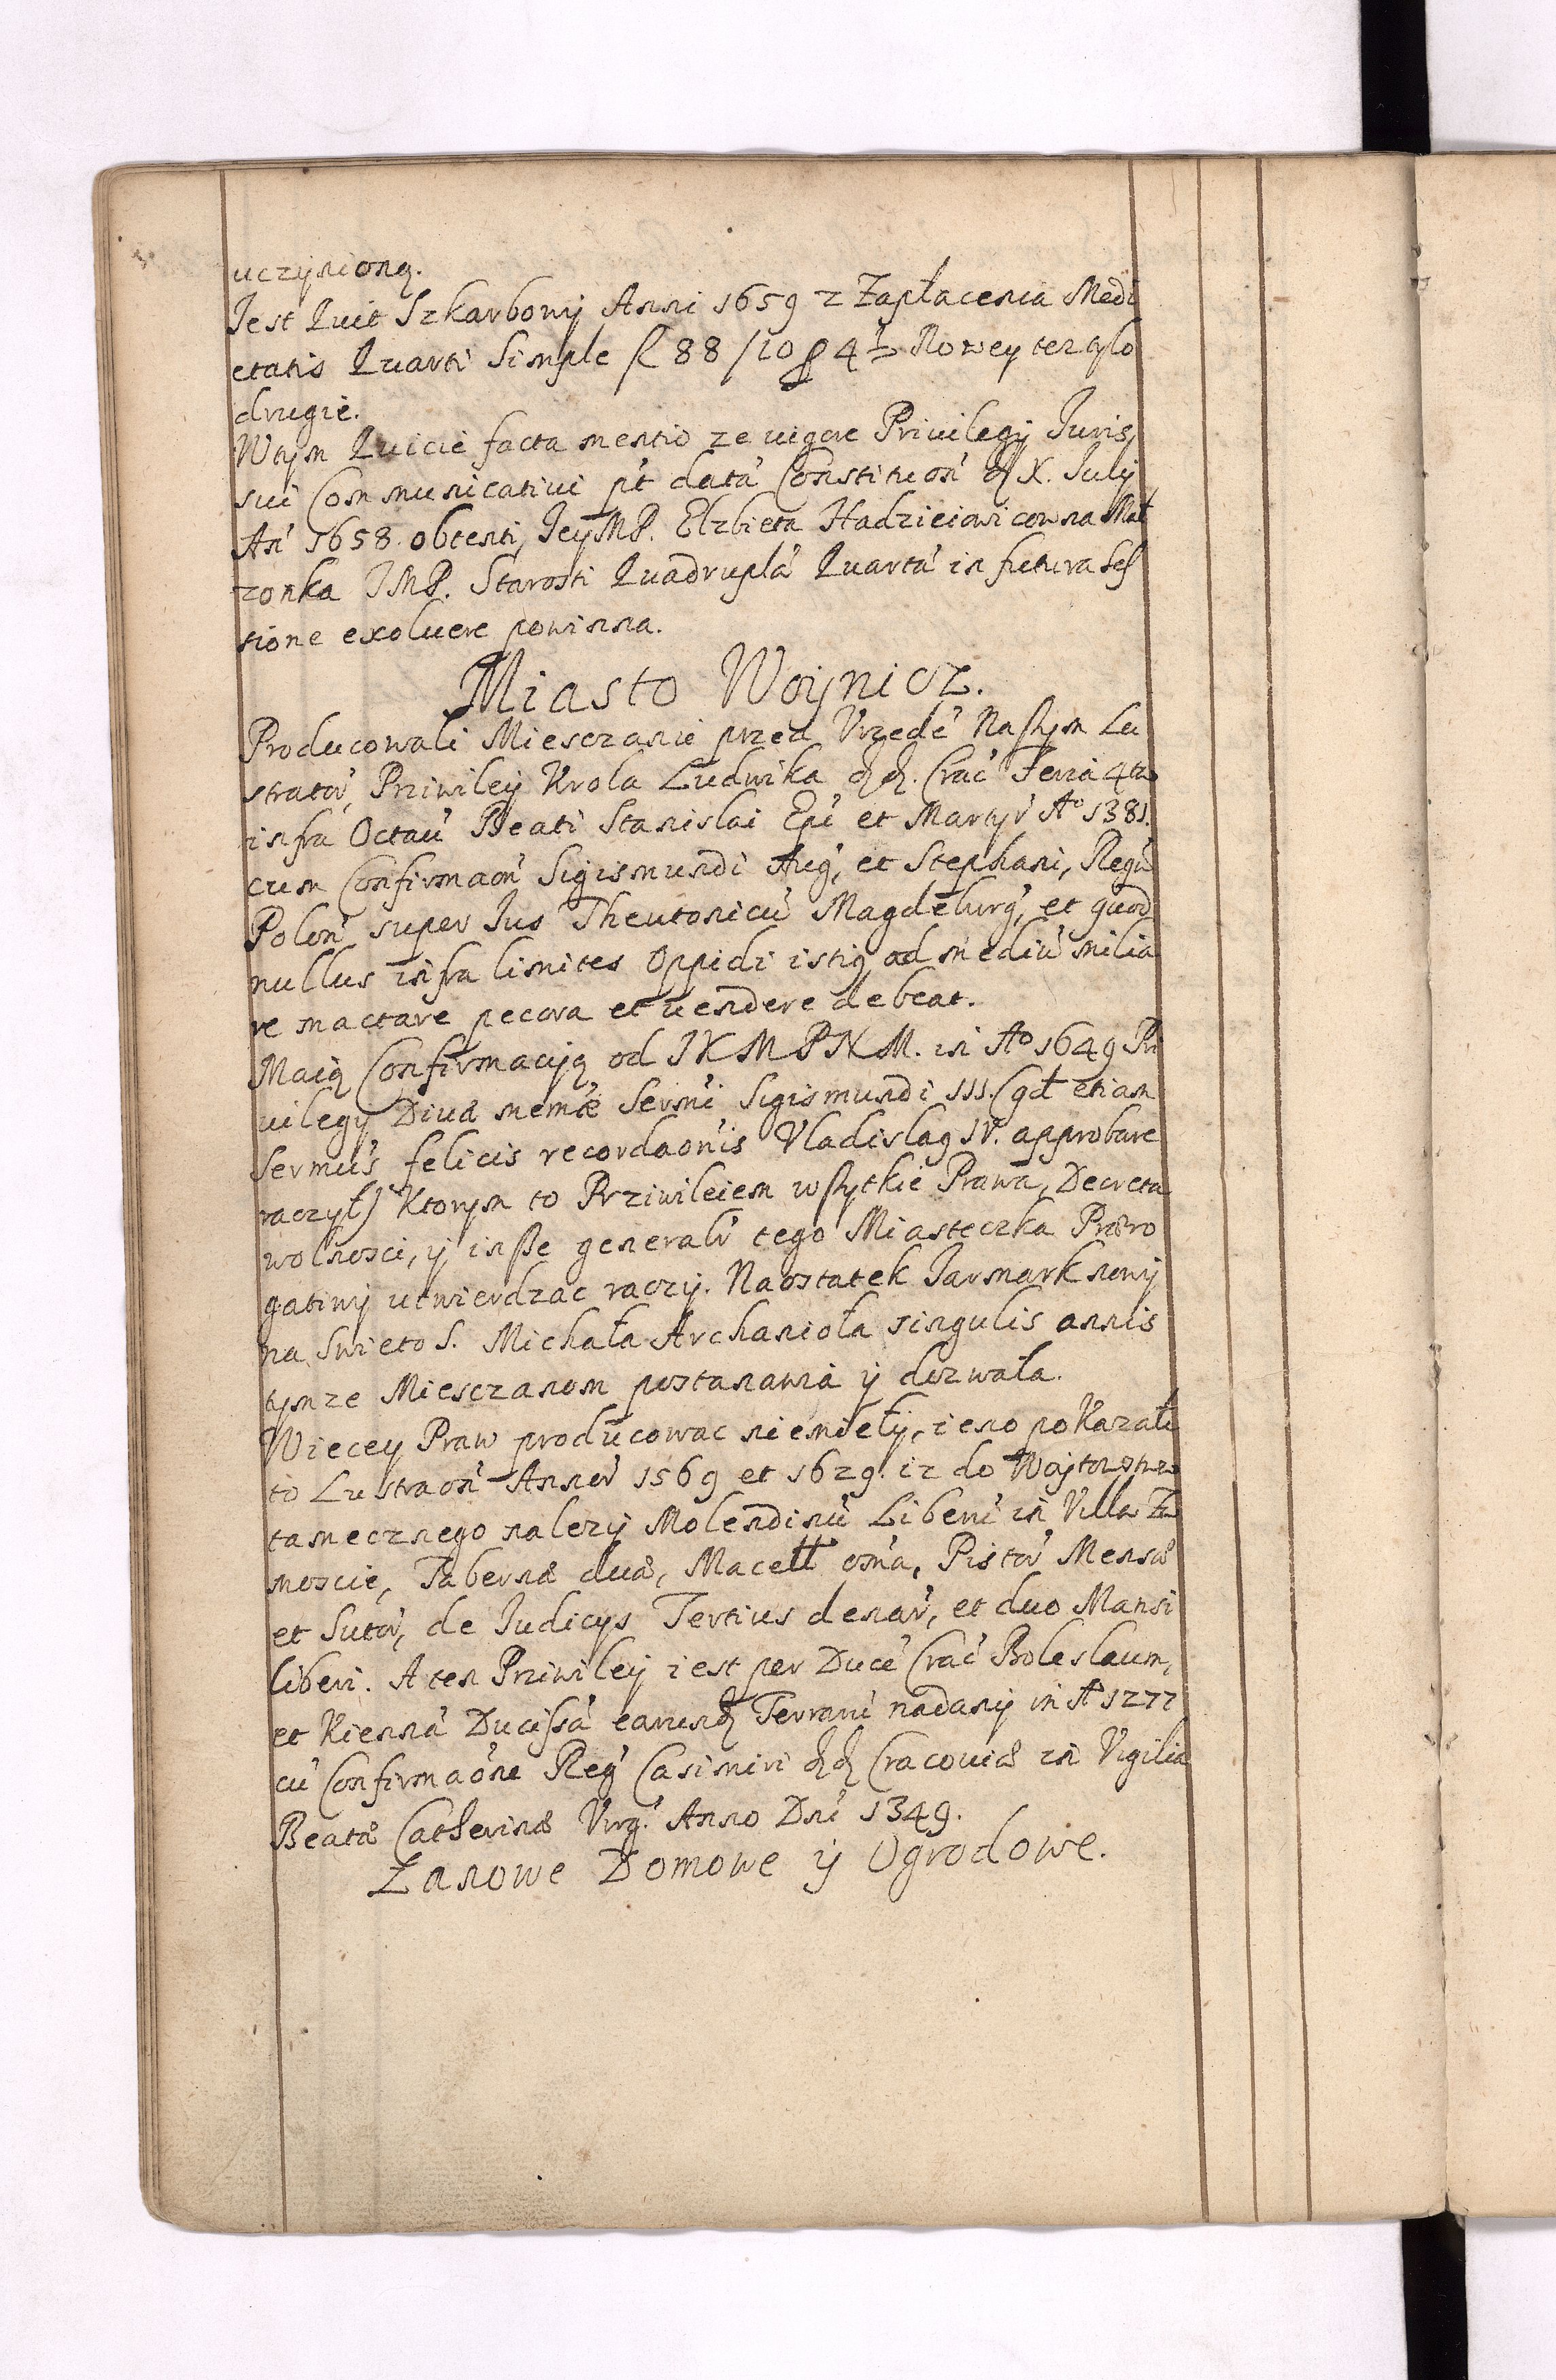 uczynioną.
Jest Quit Szkarbowy Anni 1659 z Zapłacenia Medi
etatis Quarti Simple fl 88/10 g 4½ Nowey ter tylo
drugie.
Wtym Quicie facta mentio ze uigore Priuilegij Juris
sui Communicatiui pt data Constituon dd X. July
An 1658. obtenti, JeyMP. Elzbieta Hadzieiowicowna Mał
zonka JMP. Starosti Quadrupla Quarta in futura Ses
sione exoluere powinna.
Miasto Woynicz.
Producowali Miesczanie przed Vrzede Naszym Lu
strator, Priwiley Krola Ludwika dd. Crac Feria 4ta
infra Octau Beati Stanislai Epi et Martyr Aº 1381.
cum Confirmaon Sigismundi Aug, et Stephani, Regu
Polon super Jus Theutonicu Magdeburg, et quod
nullus infra limites Oppidi istig ad mediu milia
re mactare pecora et uendere debeat.
Maią Confirmacyą od JKMPNM. in Aº 1649 Pri
uilegij Diuæ memiæ Sermi Sigismundi III. (qd etiam
Sermus felicis recordaonis Vladislag IV. approbare
raczył) Ktorym to Prziwileiem wszytkie Prawa, Decreta
wolnosci, y insze generalr tego Miasteczka Præro
gatiwy utwierdzac raczy. Naostatek Jarmark nowy
na Swieto S. Michała Archanioła singulis annis
tymze Miesczanom postanawia y dozwala.
Wiecey Praw producowac niemieły, ieno pokazali
to Lustraon Annor 1569 et 1629. iz do Woytostwa
tamecznego nalezy Molendinu Liberu in Villa Za
moscie, Tabernæ duæ, Macell oma, Pistor Mensæ
et Sutor, de Judicys Tertius denar, et duo Mansi
liberi. A ten Priwiley iest per Duce Crac Boleslaum,
et Kienna Ducissa earund Terraru nadany in Aº 1277
cu Confirmaone Reg Casimiri dd Cracouiæ in Vigilia
Beatæ Catherinæ Virg. Anno Dni 1349.
Łanowe Domowe y Ogrodowe.